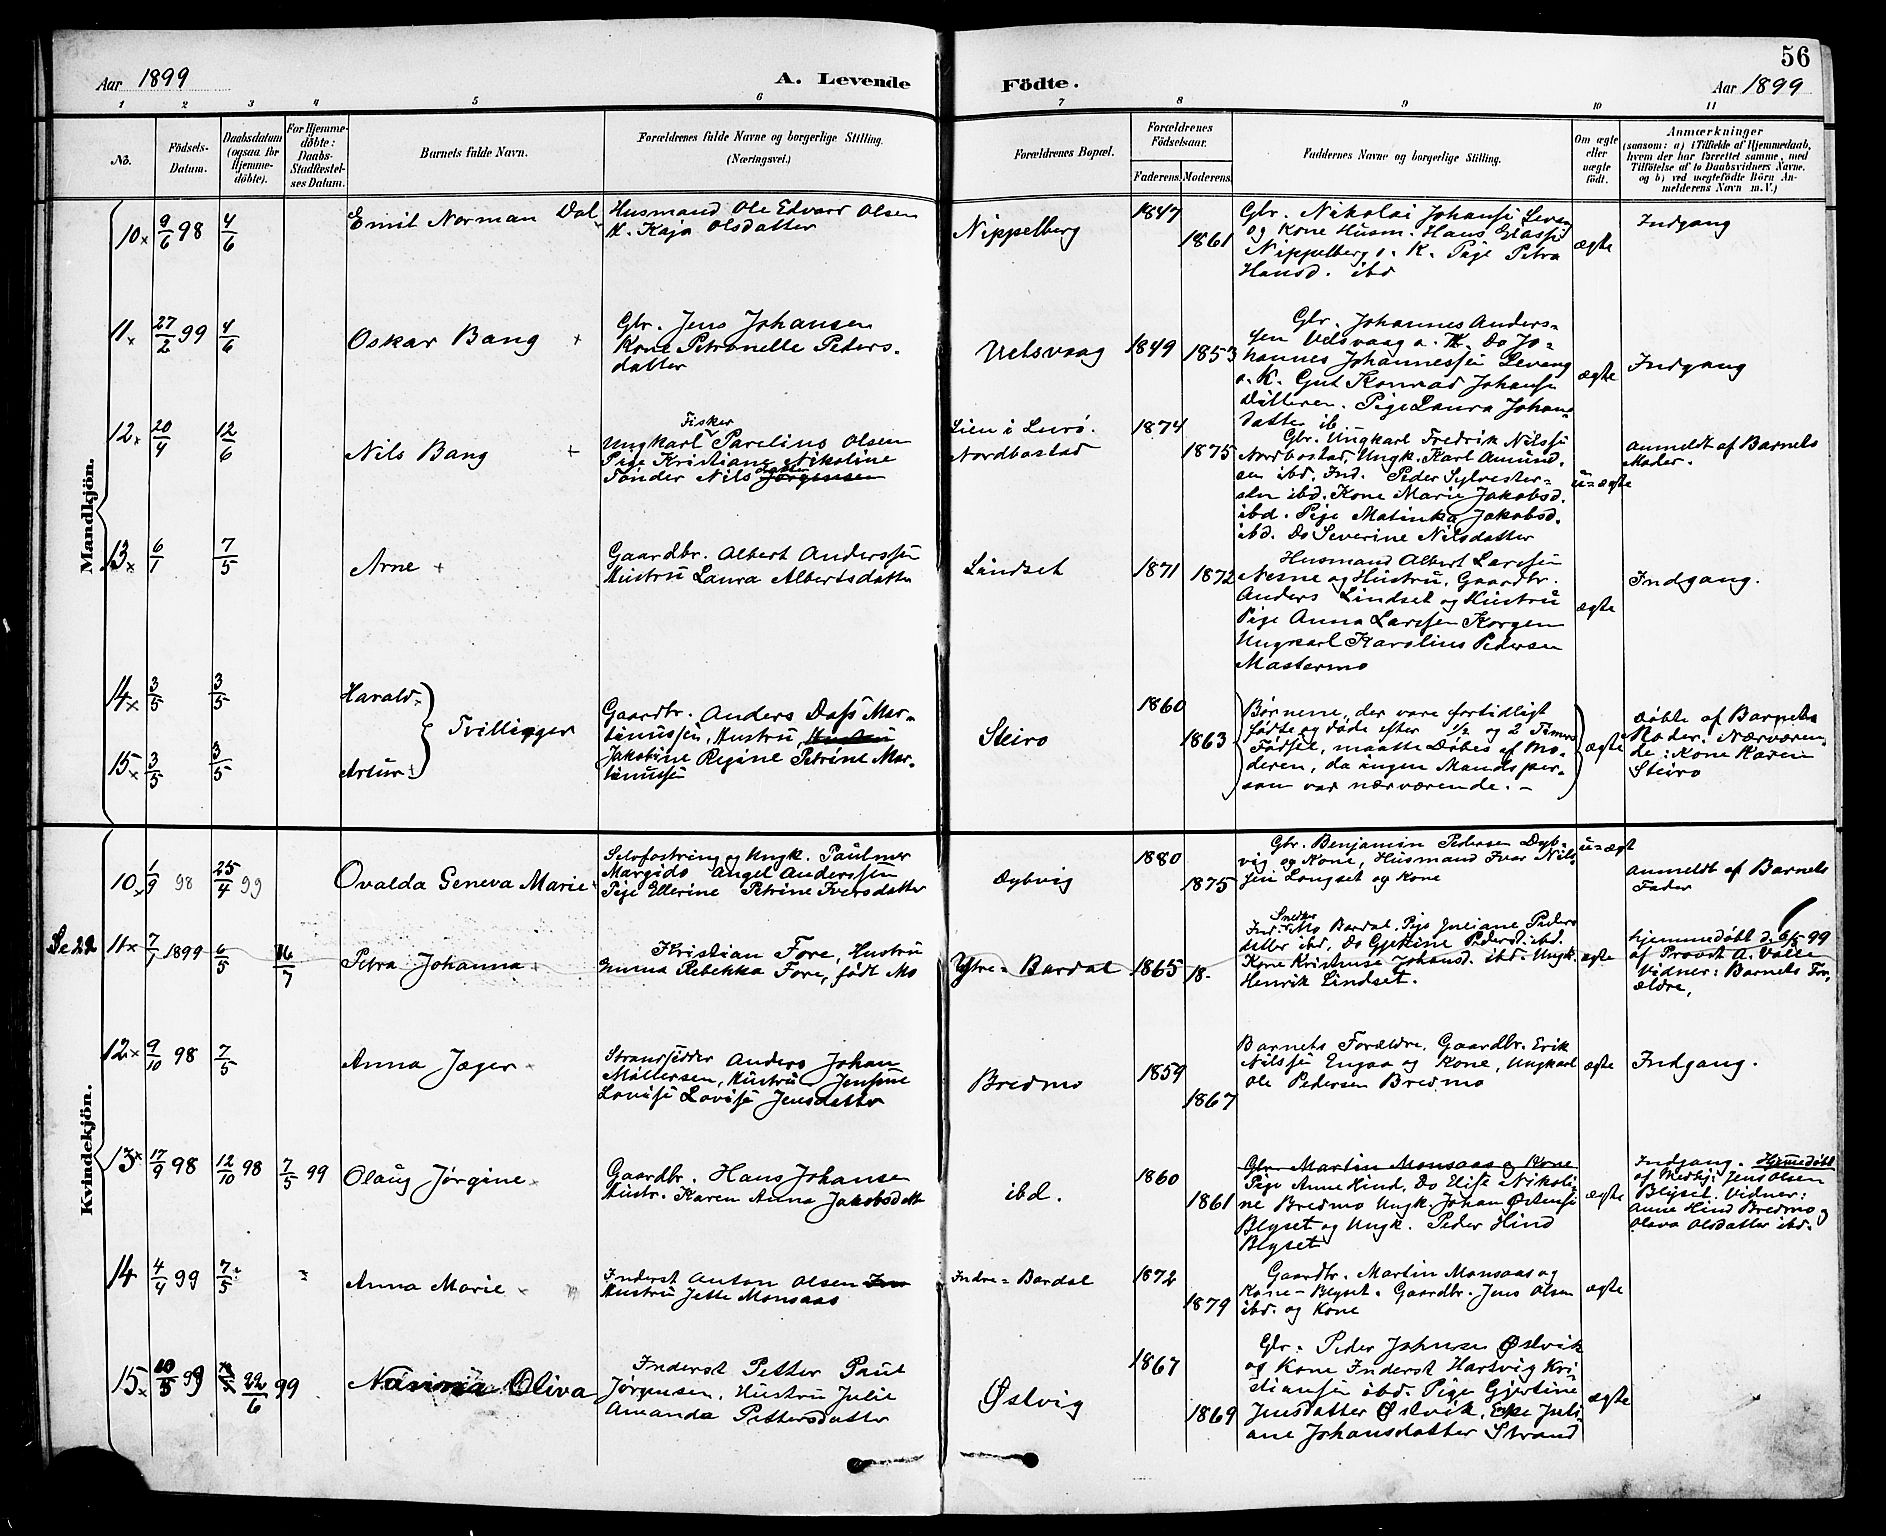 56
Aar 1899
A. Levende
Födte.
Aar 1899
1 2 3 4 5 6 7 8 9 10 11
No.
Födsels-
Datum.
Daabsdatum
(ogsaa for
Hjemme-
döbte).
For Hjemme-
döbte:
Daabs-
Stadfæstel-
ses Datum.
Barnets fulde Navn.
Forældrenes fulde Navne og borgerlige Stilling.
(Næringsvei.)
Forældrenes Bopæl.
Forældrenes
Födselsaar.
Faderens.
Moderens.
Faddernes Navne og borgerlige Stilling.
Om ægte
eller
uægte
födt.
Anmærkninger
(saasom: a) i Tilfælde af Hjemmedaab,
hvem der har forrettet samme, med
Tilföielse af to Daabsvidners Navne,
og b) ved uægtefödte Börn An-
melderens Navn m. V.)
Mandkjön.
10 9/6 98 4/6
Emil Norman Dal
Husmand Ole Edvard Olsen
K. Kaja Olsdatter
Nippelberg
1847
1861
Gbr. Nikolai Johanss Levang
og Kone Husm. Hans Eliass
Nippelberg o. K. Pige Petra
Hansd. ibd
ægte
Indgang
11 27/2 99 4/6
Oskar Bang
Gbr. Jens Johansen
Kone Petronelle Peders-
datter
Utelsvaag
1849
1853
Gbr. Johannes Anders-
sen Velsvaag o. K. Do Jo-
hannes Johannessen Levang
o. K. Gut Konrad Johanss
Pige Laura Johans-
datter ib.
ægte
Indgang
12 20/4 12/6
Nils Bang
Fisker
Ungkarl Parelius Olsen
Pige Kristiane Nikoline
Tönder Nilsdatter Jørgensen
Lien i Lurö.
Nordbostad
1874
1875
Gbr. Ungkarl Fredrik Nilssen
Nordbostad, Ungk. Karl Amund-
sen ibd. Ind. Peder Sylvester-
sen ibd. Kone Marie Jakobsd.
ibd. Pige Matinka Jakobsd.
ibd. Do Severine Nilsdatter
u=ægte
Anmeldt af Barnets
Moder.
13 6/1 7/5
Arne
Gaardbr. Albert Anderssen
Hustru Laura Albertsdatter
Lindset
1871
1872
Husmand Albert Larssen
Nesne og Hustru, Gaardbr.
Anders Lindset og Hustru
Pige Anna Larssen Korgen
Ungkarl Karolius Pedersen
Mastermo
ægte
Indgang.
14 3/5 3/5
Harald
15 3/5 3/5
Artur
Tvillinger
Gaardbr. Anders Dass Mar-
tinussen, Hustru, Hustru
Jakobine Regine Petrine Mar-
tinussen
Steiro
1860
1863
Børnene, der vare fortidligt
fødte og døde efter 1/2 og 2 Timers
Fødsel, maatte døbes af Mo-
deren, da ingen Mandsper-
son var nærværende. -
ægte
Döbte af Barnets
Moder. Nærværen-
de: Kone Karen
Steiro
Kvindekjön.
10 1/9 98 25/4 99
Ovalda Geneva Marie
Selvfostring og Ungk. Paulmer
Margido Angel Anderssen
Pige Ellerine Petrine Iversdatter
Dybvig
1880
1875
Gbr. Benjamin Pedersen Dyb-
vig og Kone, Husmand Ivar Nils-
sen Langset og Kone
u=ægt
Anmeldt af Barnets
Fader
Se 22
11 7/1 1899 6/5 16/7
Petra Johanna
Kristian Fore, Hustru
Emma Rebekka Fore, født Mo
Ytre=Bardal
1865
18-
Snedker
Ind. Mo Bardal, Pige Juliane Peders
datter ibd, Do Gjertine Pedersd. ibd.
Kone Kristense Johansd. ibd. Ungk.
Henrik Lindset.
ægte
Hjemmedøbt d. 6/5 99
af Provst A. Valle
Vidner: Barnets For-
ældre.
12 9/10 98 7/5
Anna Jæger
Strandsidder Anders Johan
Möllersen, Hustru Jensine
Lovise Lovise Jensdatter
Bredmo
1859
1867
Barnets Forældre, Gaardbr. Erik
Nilssen Engaa og Kone, Ungkarl
Ole Pedersen Bredmo
ægte
Indgang.
13 17/9 98 12/10 98 7/5 99
Olaug Jørgine
Gaardbr. Hans Johansen
Hustr. Karen Anna Jakobsdatt
ibd.
1860
1861
Gbr. Martin Monsaas og Kone
Pige Anne Hind, Do Elise Nikoli-
ne Bredmo Ungk. Johan Østensen
Blyset og Ungk. Peder Hind
Blyset
ægte
Indgang. Hjemmedøbt
af Medhj. Jens Olsen
Blyset. Vidner:
Anne Hind Bredmo og
Olava Olsdatter ibd.
14 4/4 99 7/5
Anna Marie
Inderst Anton Olsen
Hustru Jette Monsaas
Indre=Bardal
1872
1879
Gaardbr. Martin Monsaas og
Kone - Blyset. Gaardbr. Jens Olsen
ibd. og Kone
ægte
15 99 22/6 99
Nanna Oliva
Inderst Petter Paul
Jørgensen, Hustru Julie
Amanda Pettersdatter
Østvig
1867
1869
Gbr. Peder Johnsen Østvik
og Kone Inderst Hartvig Kri-
stiansen ibd. Pige Gjertine
Jensdatter Østvik, Enke Juli-
ane Johansdatter Strand
ægte